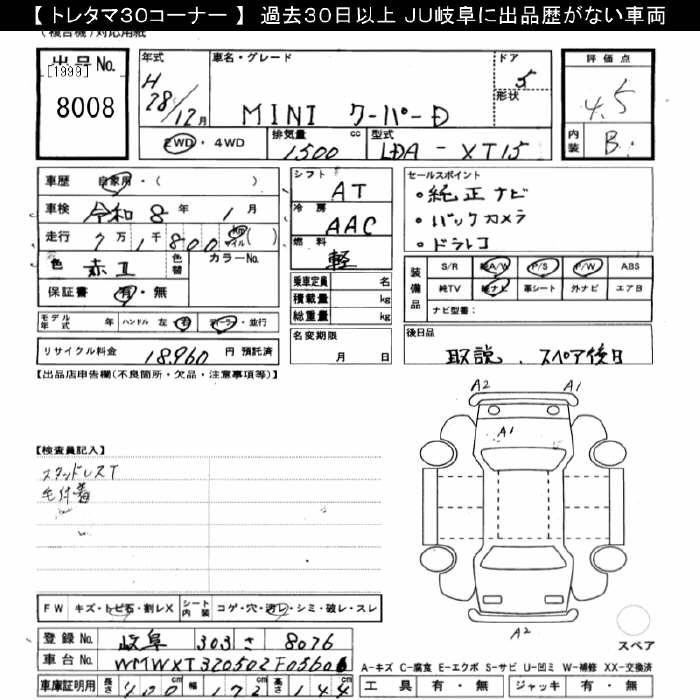 【 トレタマ30コーナー 】 過去30日以上 JU岐阜に出品歴がない車両
(複合機)対応用紙
出品No.
[1999]
8008
年式
H
28/12月
車名・グレード
MINI クーパーD
ドア
5
形状
評価点
4.5
内装
B
2WD・4WD
排気量
1500
cc
型式
LDA-XT15
車歴 自家用・( )
車検 令和8年 1月
走行 7万1千800 km マイル( )
色 赤II 色替 カラーNo.
保証書 有・無
モデル年式 年 ハンドル 左・右 ディーラー・並行
リサイクル料金 18,960 円 預託済
シフト AT
冷房 AAC
燃料 軽
乗車定員 名
積載量 kg
総重量 kg
名変期限
月 日
セールスポイント
・純正ナビ
・バックカメラ
・ドラレコ
装備品
S/R 純A/W P/S P/W ABS
純TV 純ナビ 革シート 外ナビ エアB
ナビ型番:
後日品
取説、スペア後日
【出品店申告欄(不良箇所・欠品・注意事項等)】
【検査員記入】
スタッドレスT
毛付着
A2
A1
A1
A1
A2
スペア
FW キズ・トビ石・割レX シート内装 コゲ・穴・汚レ・シミ・破レ・スレ
登録No. 岐阜 303 さ 8076
車台No. WMWXT320502F05606
車庫証明用 長さ 400 cm 幅 172 cm 高さ 144 cm
A-キズ C-腐食 E-エクボ S-サビ U-凹ミ W-補修 XX-交換済
工具 有・無 ジャッキ 有・無